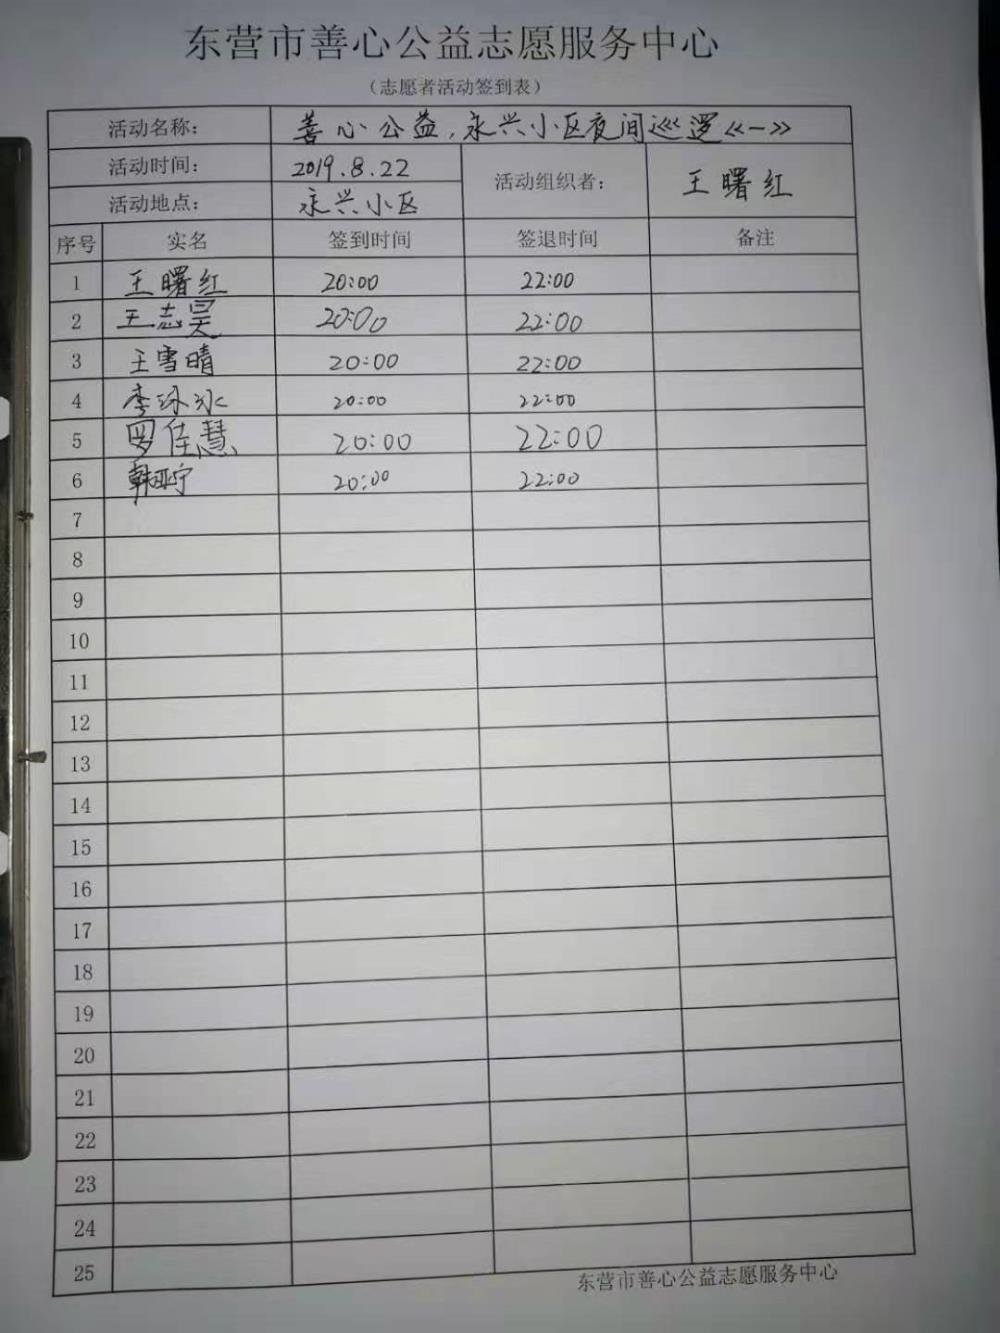 东营市善心公益志愿服务中心
（志愿者活动签到表）
活动名称： 善心公益，永兴小区夜间巡逻《一》
活动时间： 2019.8.22 活动组织者： 王曙红
活动地点： 永兴小区
序号 实名 签到时间 签退时间 备注
1 王曙红 20:00 22:00
2 王志昊 20:00 22:00
3 王雪晴 20:00 22:00
4 李泳冰 20:00 22:00
5 罗佳慧 20:00 22:00
6 韩亚宁 20:00 22:00
7
8
9
10
11
12
13
14
15
16
17
18
19
20
21
22
23
24
25
东营市善心公益志愿服务中心